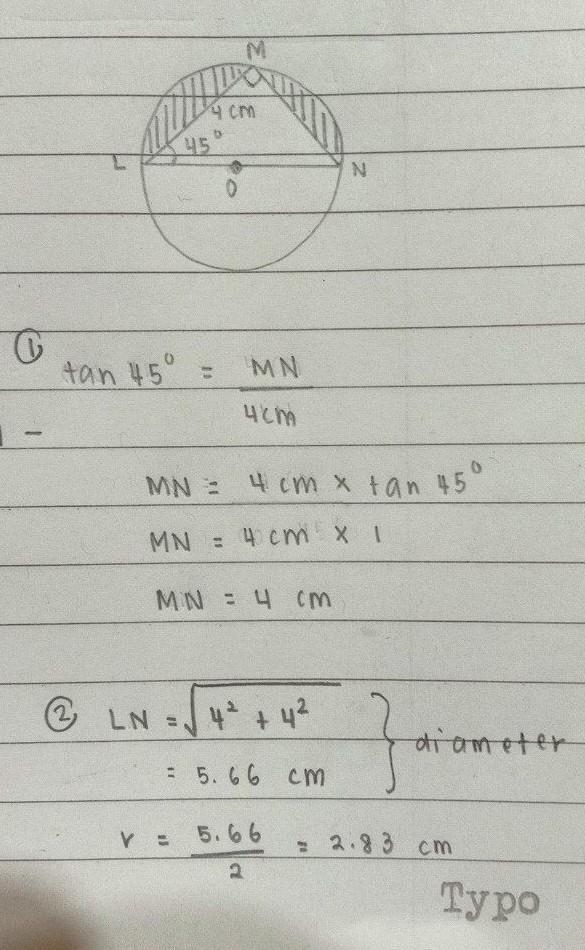 M
4 cm
45°
L
N
O
① tan 45° = MN / 4cm
-
MN = 4 cm x tan 45°
MN = 4 cm x 1
MN = 4 cm
② LN = √4² + 4²
= 5.66 cm
} diameter
r = 5.66 / 2 = 2.83 cm
Typo